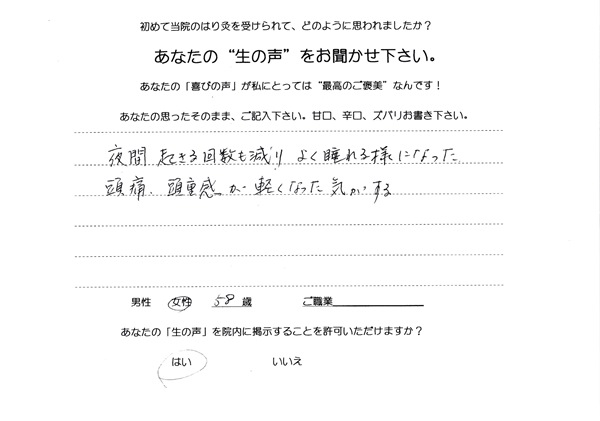 初めて当院のはり灸を受けられて、どのように思われましたか？
あなたの“生の声”をお聞かせ下さい。
あなたの「喜びの声」が私にとっては“最高のご褒美”なんです！
あなたの思ったそのまま、ご記入下さい。甘口、辛口、ズバリお書き下さい。
夜間 起きる回数も減り よく睡れる様になった
頭痛、頭重感が軽くなった気がする
男性 女性 58 歳 ご職業
あなたの「生の声」を院内に掲示することを許可いただけますか？
はい いいえ